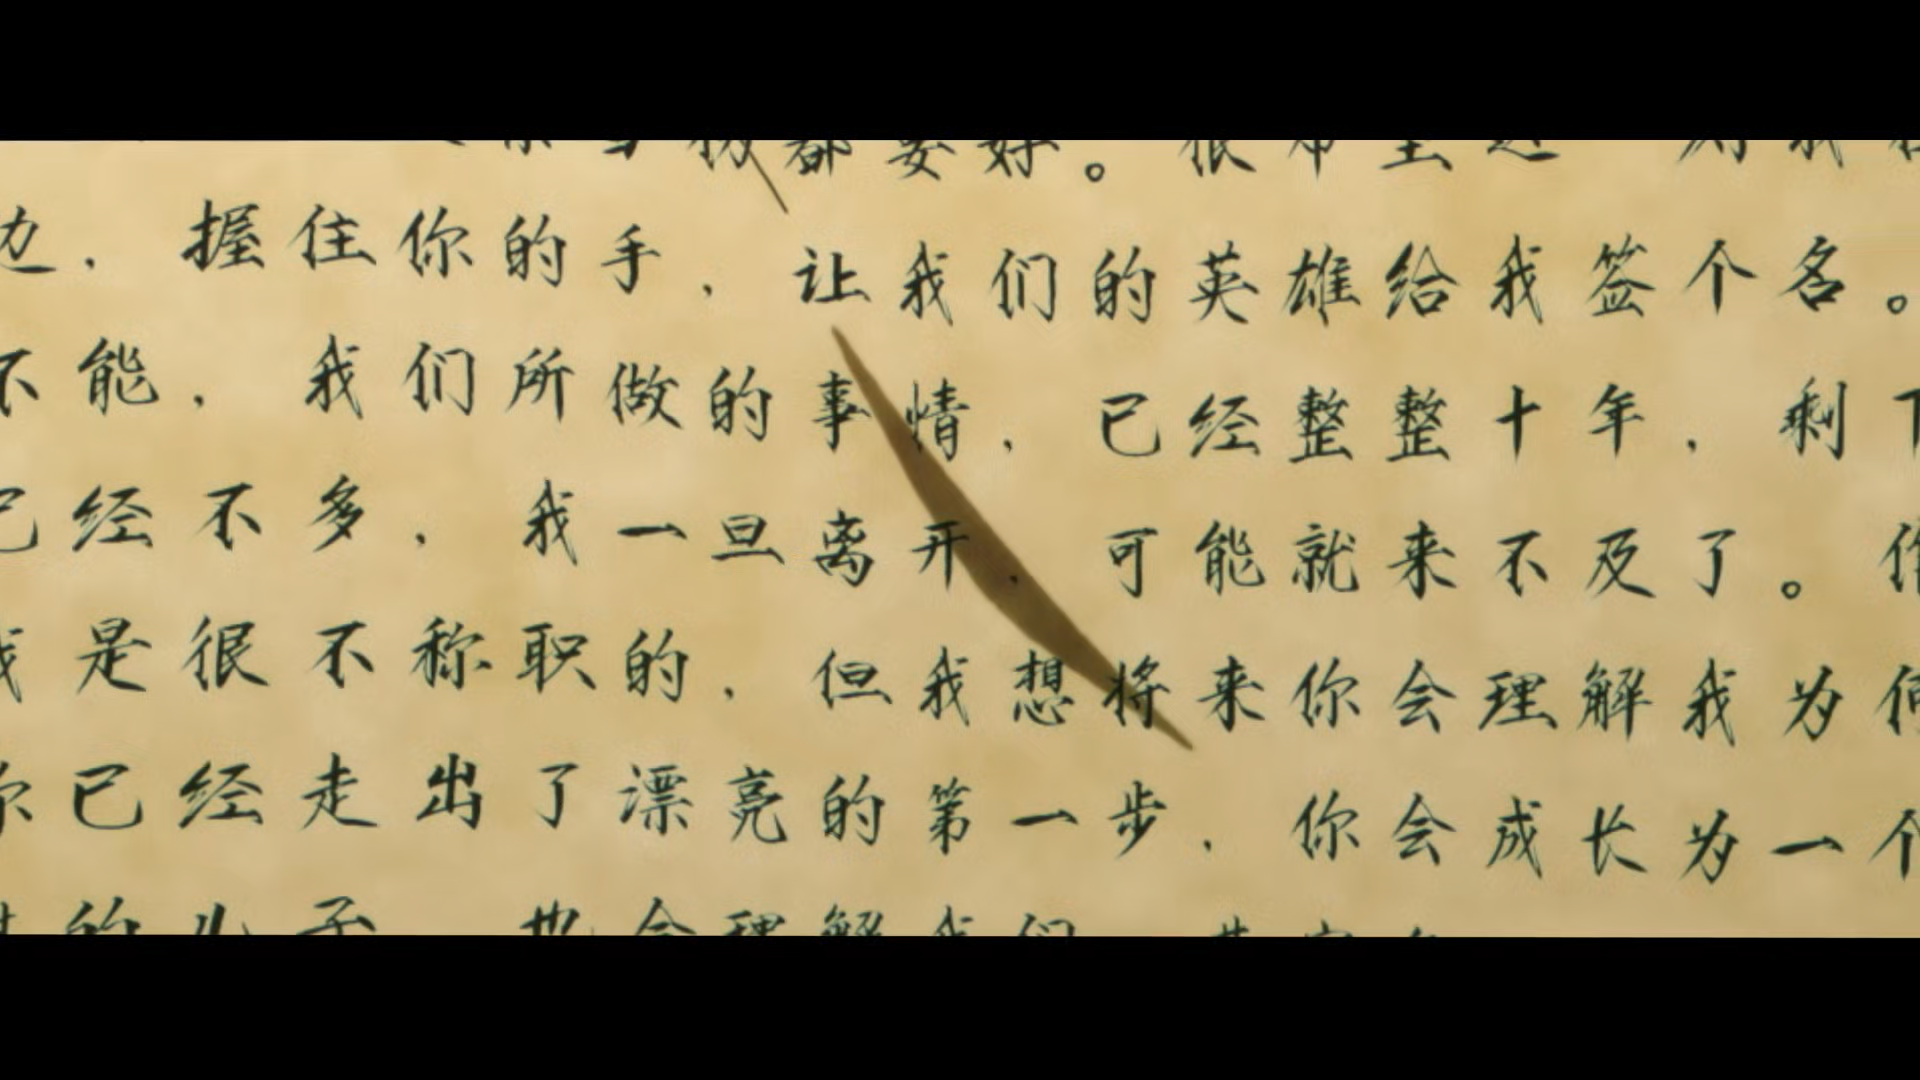 都要好。很希望这
边，握住你的手，让我们的英雄给我签个名。
不能，我们所做的事情，已经整整十年，剩下
已经不多，我一旦离开，可能就来不及了。作
我是很不称职的，但我想将来你会理解我为何
你已经走出了漂亮的第一步，你会成长为一个
的儿子，也会理解我们